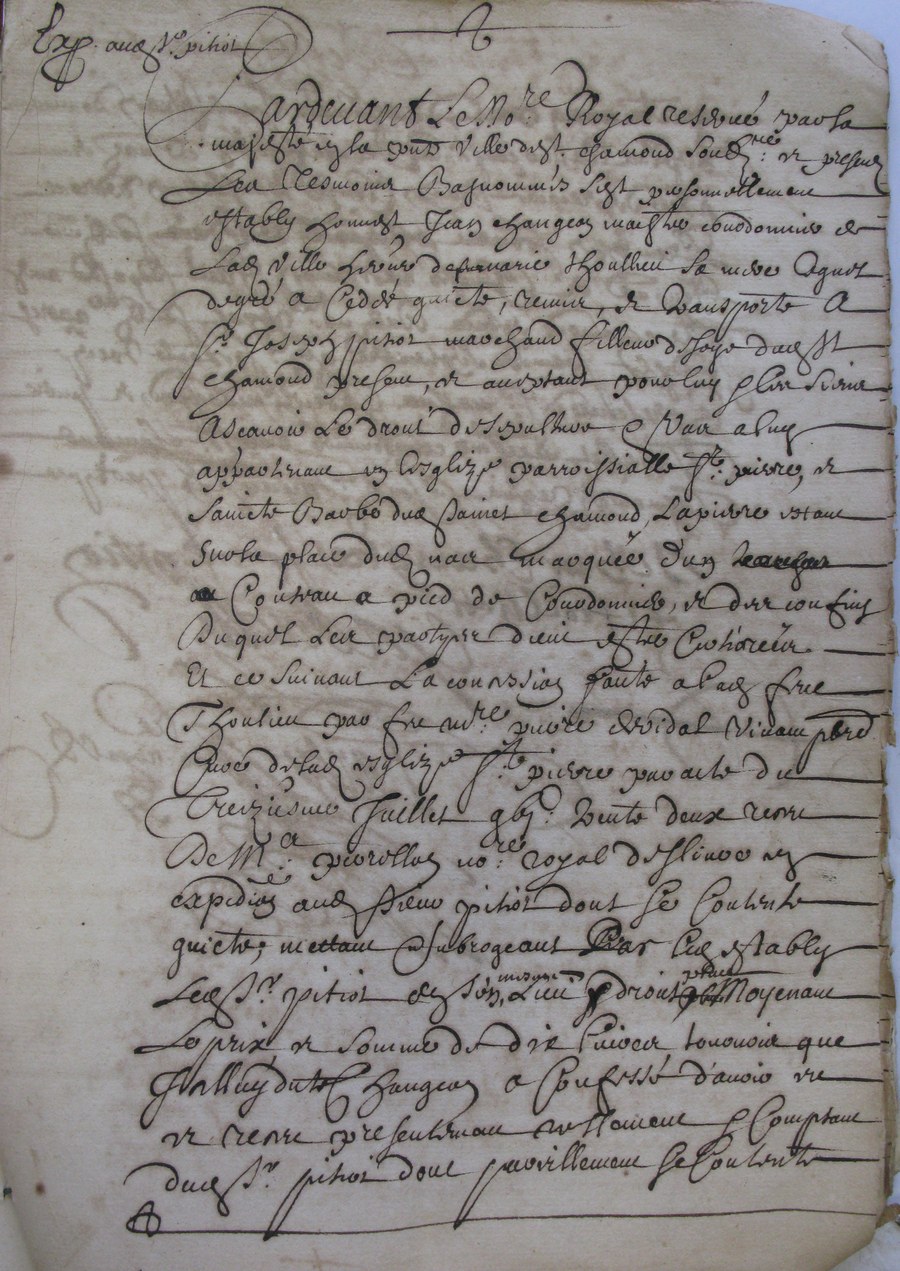 Exp. aud Sr pitiot
Pardevant Le No.re Royal reservé par sa
majesté en la pnte Ville de St. chamond soubz.né: et presens
Les Tesmoins Basnommés s'est personnellement
estably honnest Jean changeon maistre courdonnier de
Lad Ville heritier de marie thoullieu sa mere Lequel
de gré a Cédé quicte, remis, et transporte A
Sr. Joseph pitiot marchand filleur de soye dud St
chamond present, et acceptant pour luy & les siens
Ascavoir Le droit de sepulture & Vas a luy
appartenant en l'esglize parroissialle St. pierre, et
Saincte Barbe dud Sainct chamond, La pierre estant
Sur la place dud vas marquée d'un
Couteau a pied de Courdonnier, et des confins
Duquel Les partyes dient estre Certioreés
Et ce suivant La concession faite a lad feue
Thoulieu par feu m.re pierre devidal Vivant pbre
Curé de lad esglize St. pierre par acte du
Treiziesme Juillet gbj.c trente deux receu
De M.e no.re royal
expédié aud Sieur pitiot dont se Contente
quicte, mettant & subrogeant Led estably
Led Sr. pitiot en Ses mesme Lieu & droit place Moyenant
Le prix et somme de dix Livres tournois que
Icelluy dit Changeon a Confessé d'avoir eu
et receu presentement reellement & Comptant
dud Sr. pitiot dont pareillement se Contente